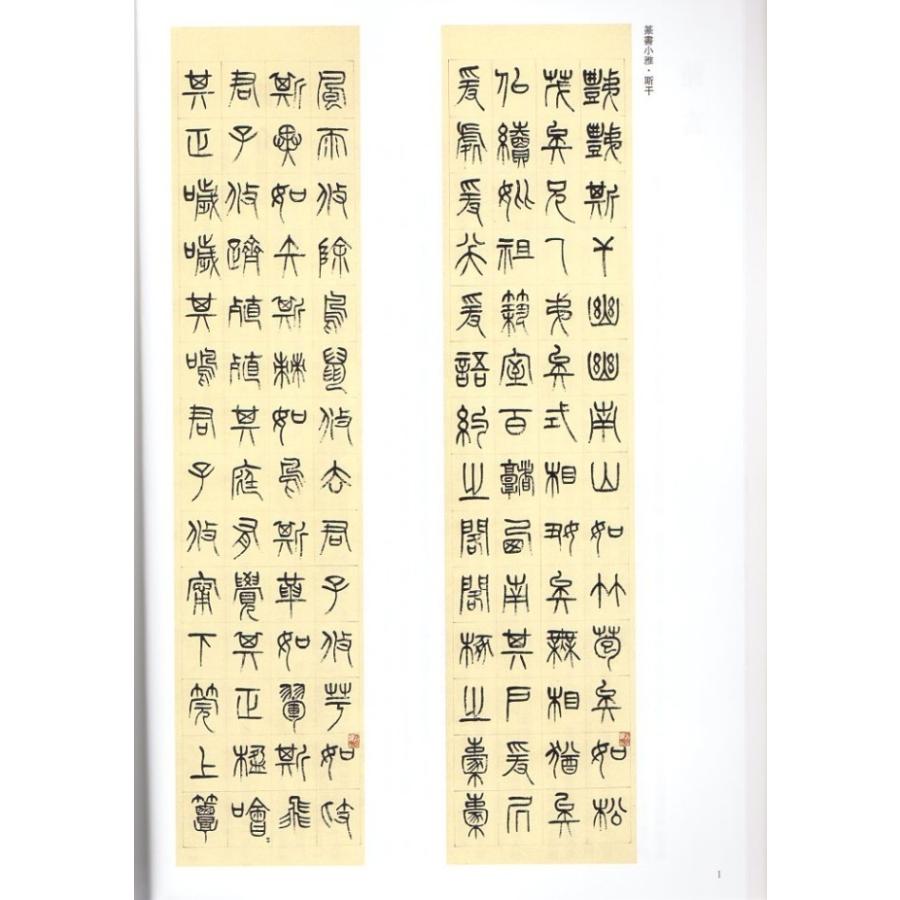 篆書小雅・斯干
豒豒斯干幽幽南山如竹苞矣如松
茂矣兄及弟矣式相好矣無相猶矣
似續妣祖築室百堵西南其戶爰凥
爰處爰笑爰語約之閣閣椓之橐橐
風雨攸除鳥鼠攸去君子攸芋如跂
斯翼如矢斯棘如鳥斯革如翬斯飛
君子攸躋殖殖其庭有覺其正楹噲
其正噦噦其鳴君子攸寧下莞上簟
1